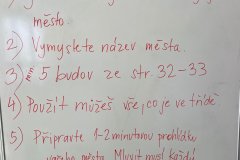 město.
2) Vymyslete název města.
3) min 5 budov ze str. 32-33
4) Použít můžeš vše, co je ve třídě
5) Připravte 1-2 minutovou prohlídku
vašeho města. Mluvit musí každý